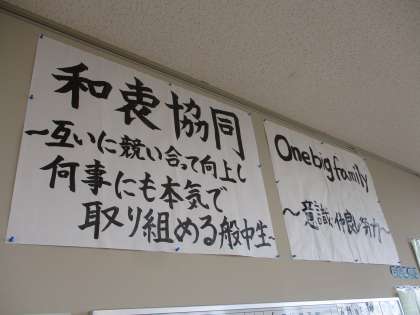 和衷協同
～互いに競い合って向上し
何事にも本気で
取り組める般中生～
One big family
～意識・仲良し・努力～